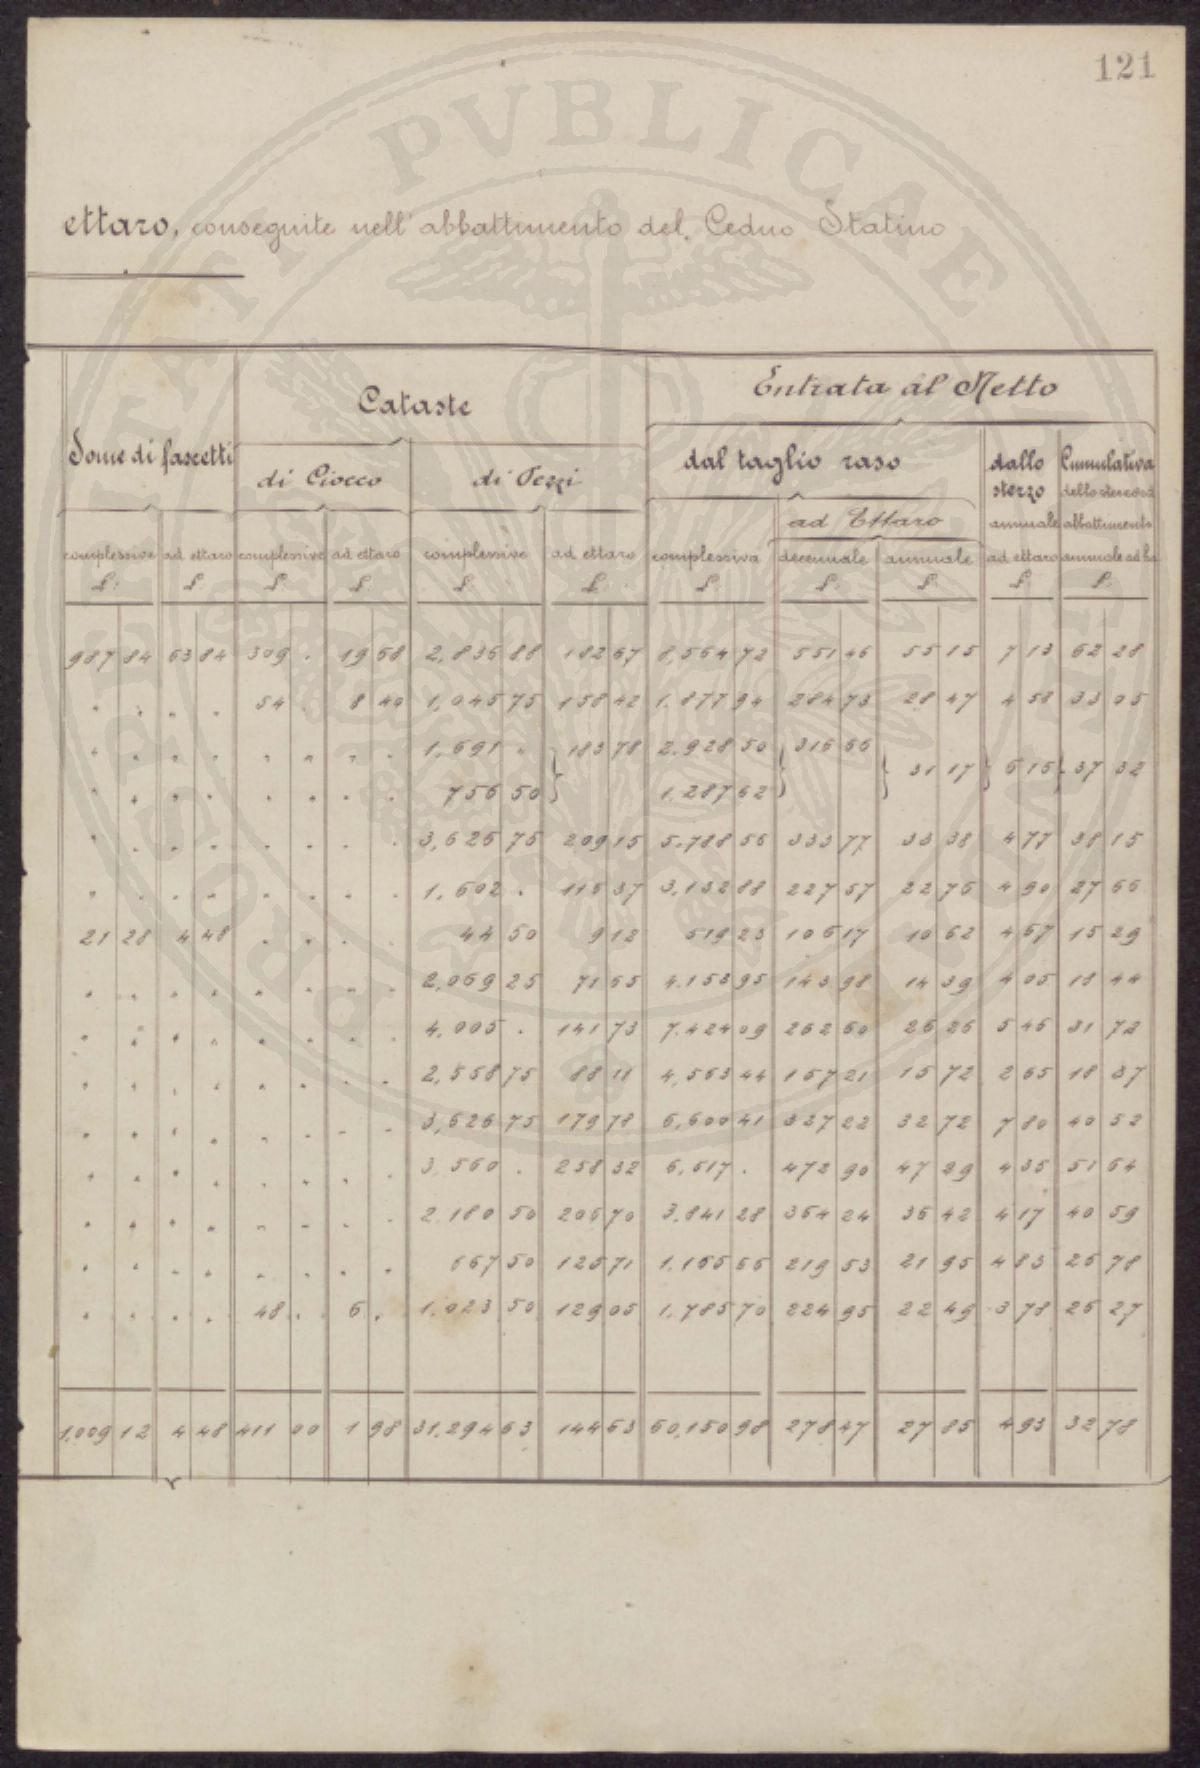 121
ettaro, conseguite nell'abbattimento del Ceduo Statino
Some di fascetti | Cataste | Entrata al Netto
di Ciocco | di Pezzi | dal taglio raso | dallo sterzo | Cumulativa dello sterzo ed
ad Ettaro | annuale | abbattimento
complessive | ad ettaro | complessive | ad ettaro | complessive | ad ettaro | complessiva | decennale | annuale | ad ettaro | annuale ad ha
L: | L: | L: | L: | L: | L: | L: | L: | L: | L: | L:
987 84 | 63 84 | 309 . | 19 68 | 2,836 88 | 182 67 | 8,564 72 | 551 46 | 55 15 | 7 13 | 62 28
. . | . . | 54 . | 8 40 | 1,045 75 | 158 42 | 1.877 94 | 284 73 | 28 47 | 4 58 | 33 05
. . | . . | . . | . . | 1,691 . | 183 78 | 2.928 50 | 316 66 | 31 17 | 6 15 | 37 32
. . | . . | . . | . . | 756 50 | 1.287 62
. . | . . | . . | . . | 3,626 75 | 209 15 | 5.788 56 | 333 77 | 33 38 | 4 77 | 38 15
. . | . . | . . | . . | 1,602 . | 116 37 | 3,132 88 | 227 57 | 22 76 | 4 90 | 27 66
21 28 | 4 48 | . . | . . | 44 50 | 9 12 | 519 23 | 106 17 | 10 62 | 4 67 | 15 29
. . | . . | . . | . . | 2,069 25 | 71 65 | 4.153 95 | 143 98 | 14 39 | 4 05 | 18 44
. . | . . | . . | . . | 4,005 . | 141 73 | 7.424 09 | 262 60 | 26 26 | 5 46 | 31 72
. . | . . | . . | . . | 2,558 75 | 88 11 | 4,563 44 | 157 21 | 15 72 | 2 65 | 18 37
. . | . . | . . | . . | 3,626 75 | 179 78 | 6,600 41 | 327 22 | 32 72 | 7 80 | 40 52
. . | . . | . . | . . | 3,560 . | 258 32 | 6,517 . | 472 90 | 47 29 | 4 35 | 51 64
. . | . . | . . | . . | 2,180 50 | 206 70 | 3,841 28 | 364 24 | 36 42 | 4 17 | 40 59
. . | . . | . . | . . | 667 50 | 125 71 | 1,165 66 | 219 53 | 21 95 | 4 83 | 26 78
. . | . . | 48 . | 6 . | 1,023 50 | 129 05 | 1,785 70 | 224 95 | 22 49 | 3 78 | 26 27
1,009 12 | 4 48 | 411 00 | 1 98 | 31,294 63 | 144 63 | 60,150 98 | 278 47 | 27 85 | 4 93 | 32 78